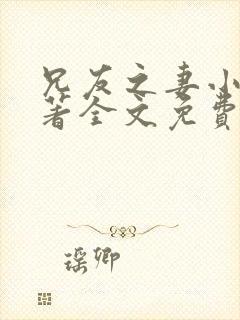 兄友之妻小
著全文免费
瑶卿